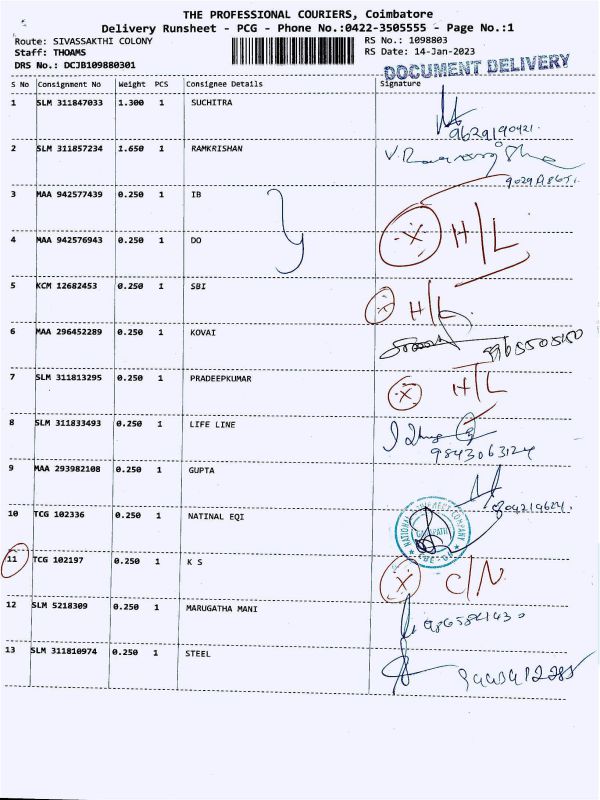 THE PROFESSIONAL COURIERS, Coimbatore
Delivery Runsheet - PCG - Phone No.:0422-3505555 - Page No.:1
Route: SIVASSAKTHI COLONY
Staff: THOAMS
DRS No.: DCJB109880301
RS No.: 1098803
RS Date: 14-Jan-2023
DOCUMENT DELIVERY
S No Consignment No Weight PCS Consignee Details Signature
1 SLM 311847033 1.300 1 SUCHITRA
2 SLM 311857234 1.650 1 RAMKRISHAN
3 MAA 942577439 0.250 1 IB
X H/L
4 MAA 942576943 0.250 1 DO
5 KCM 12682453 0.250 1 SBI X H/L
6 MAA 296452289 0.250 1 KOVAI
7 SLM 311813295 0.250 1 PRADEEPKUMAR X H/L
8 SLM 311833493 0.250 1 LIFE LINE
9843063124
9 MAA 293982108 0.250 1 GUPTA
10 TCG 102336 0.250 1 NATINAL EQI
11 TCG 102197 0.250 1 K S X C/N
12 SLM 5218309 0.250 1 MARUGATHA MANI
13 SLM 311810974 0.250 1 STEEL